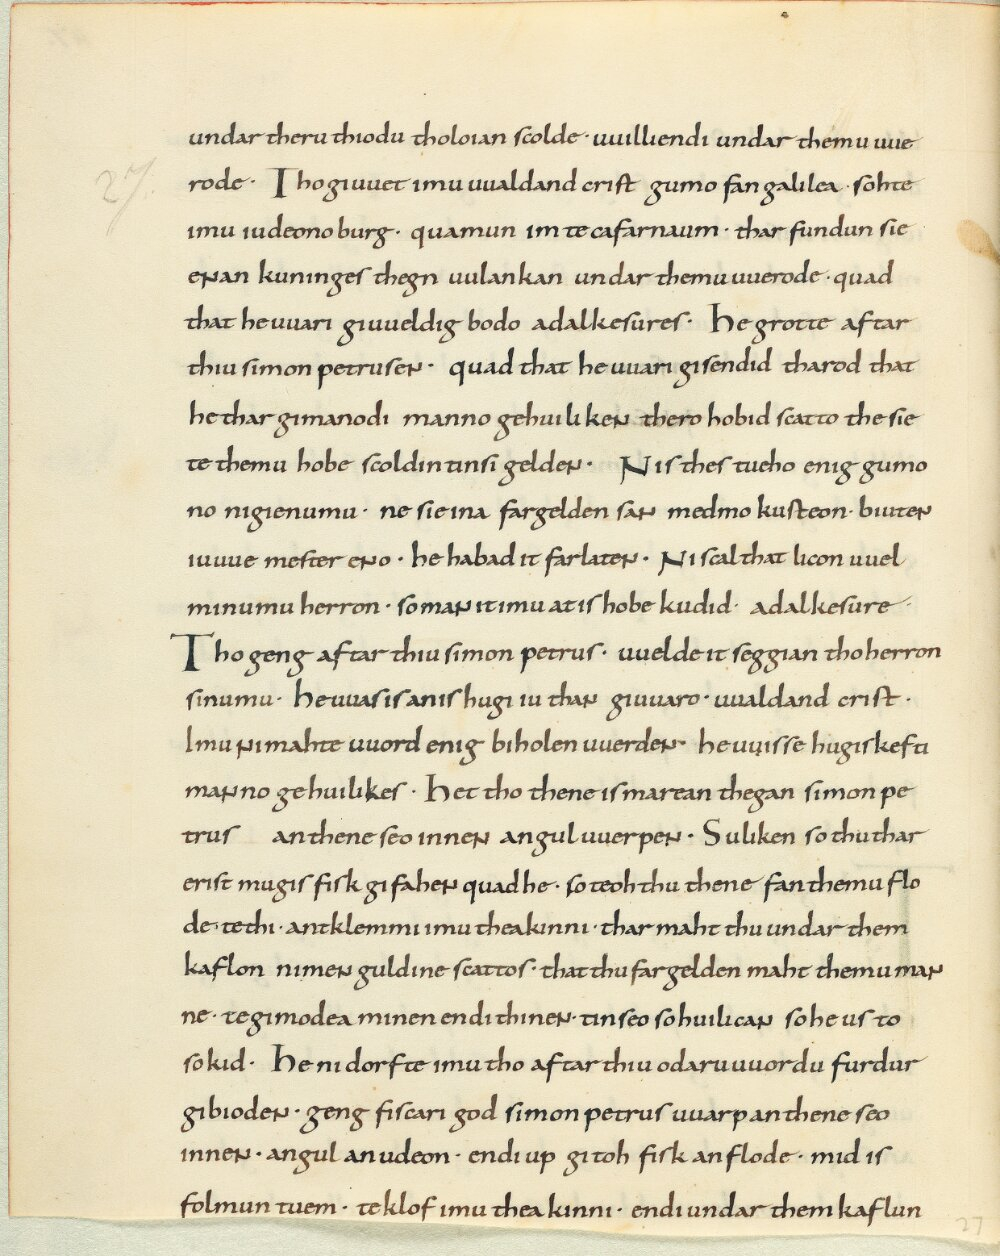 undar theru thiodu tholoian scolde · uuilliendi undar themu uue
27.
rode · Tho giuuet imu uualdand crist gumo fan galilea · sohte
imu iudeono burg · quamun im te cafarnaum · thar fundun sie
enan kuninges thegn uulankan undar themu uuerode · quad
that he uuari giuueldig bodo adalkesures · He grotte aftar
thiu simon petrusen · quad that he uuari gisendid tharod that
he thar gimanodi manno gehuiliken thero hobid scatto the sie
te themu hobe scoldin tinsi gelden · Nis thes tueho enig gumo
no nigienumu · ne sie ina fargelden san medmo kusteon · biuten
iuuue mester eno · he habad it farlaten · Ni scal that licon uuel
minumu herron · so man it imu at is hobe kudid · adalkesure ·
Tho geng aftar thiu simon petrus · uuelde it seggian tho herron
sinumu · he uuas is an is hugi iu than giuuaro · uualdand crist ·
Imu ni mahte uuord enig biholen uuerden · he uuisse hugiskefti
manno gehuilikes · Het tho thene is marean thegan simon pe
trus an thene seo innen angul uuerpen · Suliken so thu thar
erist mugis fisk gifahen quad he · so teoh thu thene fan themu flo
de · te thi · antklemmi imu thea kinni · thar maht thu undar them
kaflon nimen guldine scattos · that thu fargelden maht themu man
ne · te gimodea minen endi thinen · tinseo so huilican so he us to
sokid · He ni dorfte imu tho aftar thiu odaru uuordu furdur
gibioden · geng fiscari god simon petrus uuarp an thene seo
innen · angul an udeon · endi up gitoh fisk an flode · mid is
folmun tuem · teklof imu thea kinni · endi undar them kaflun
27